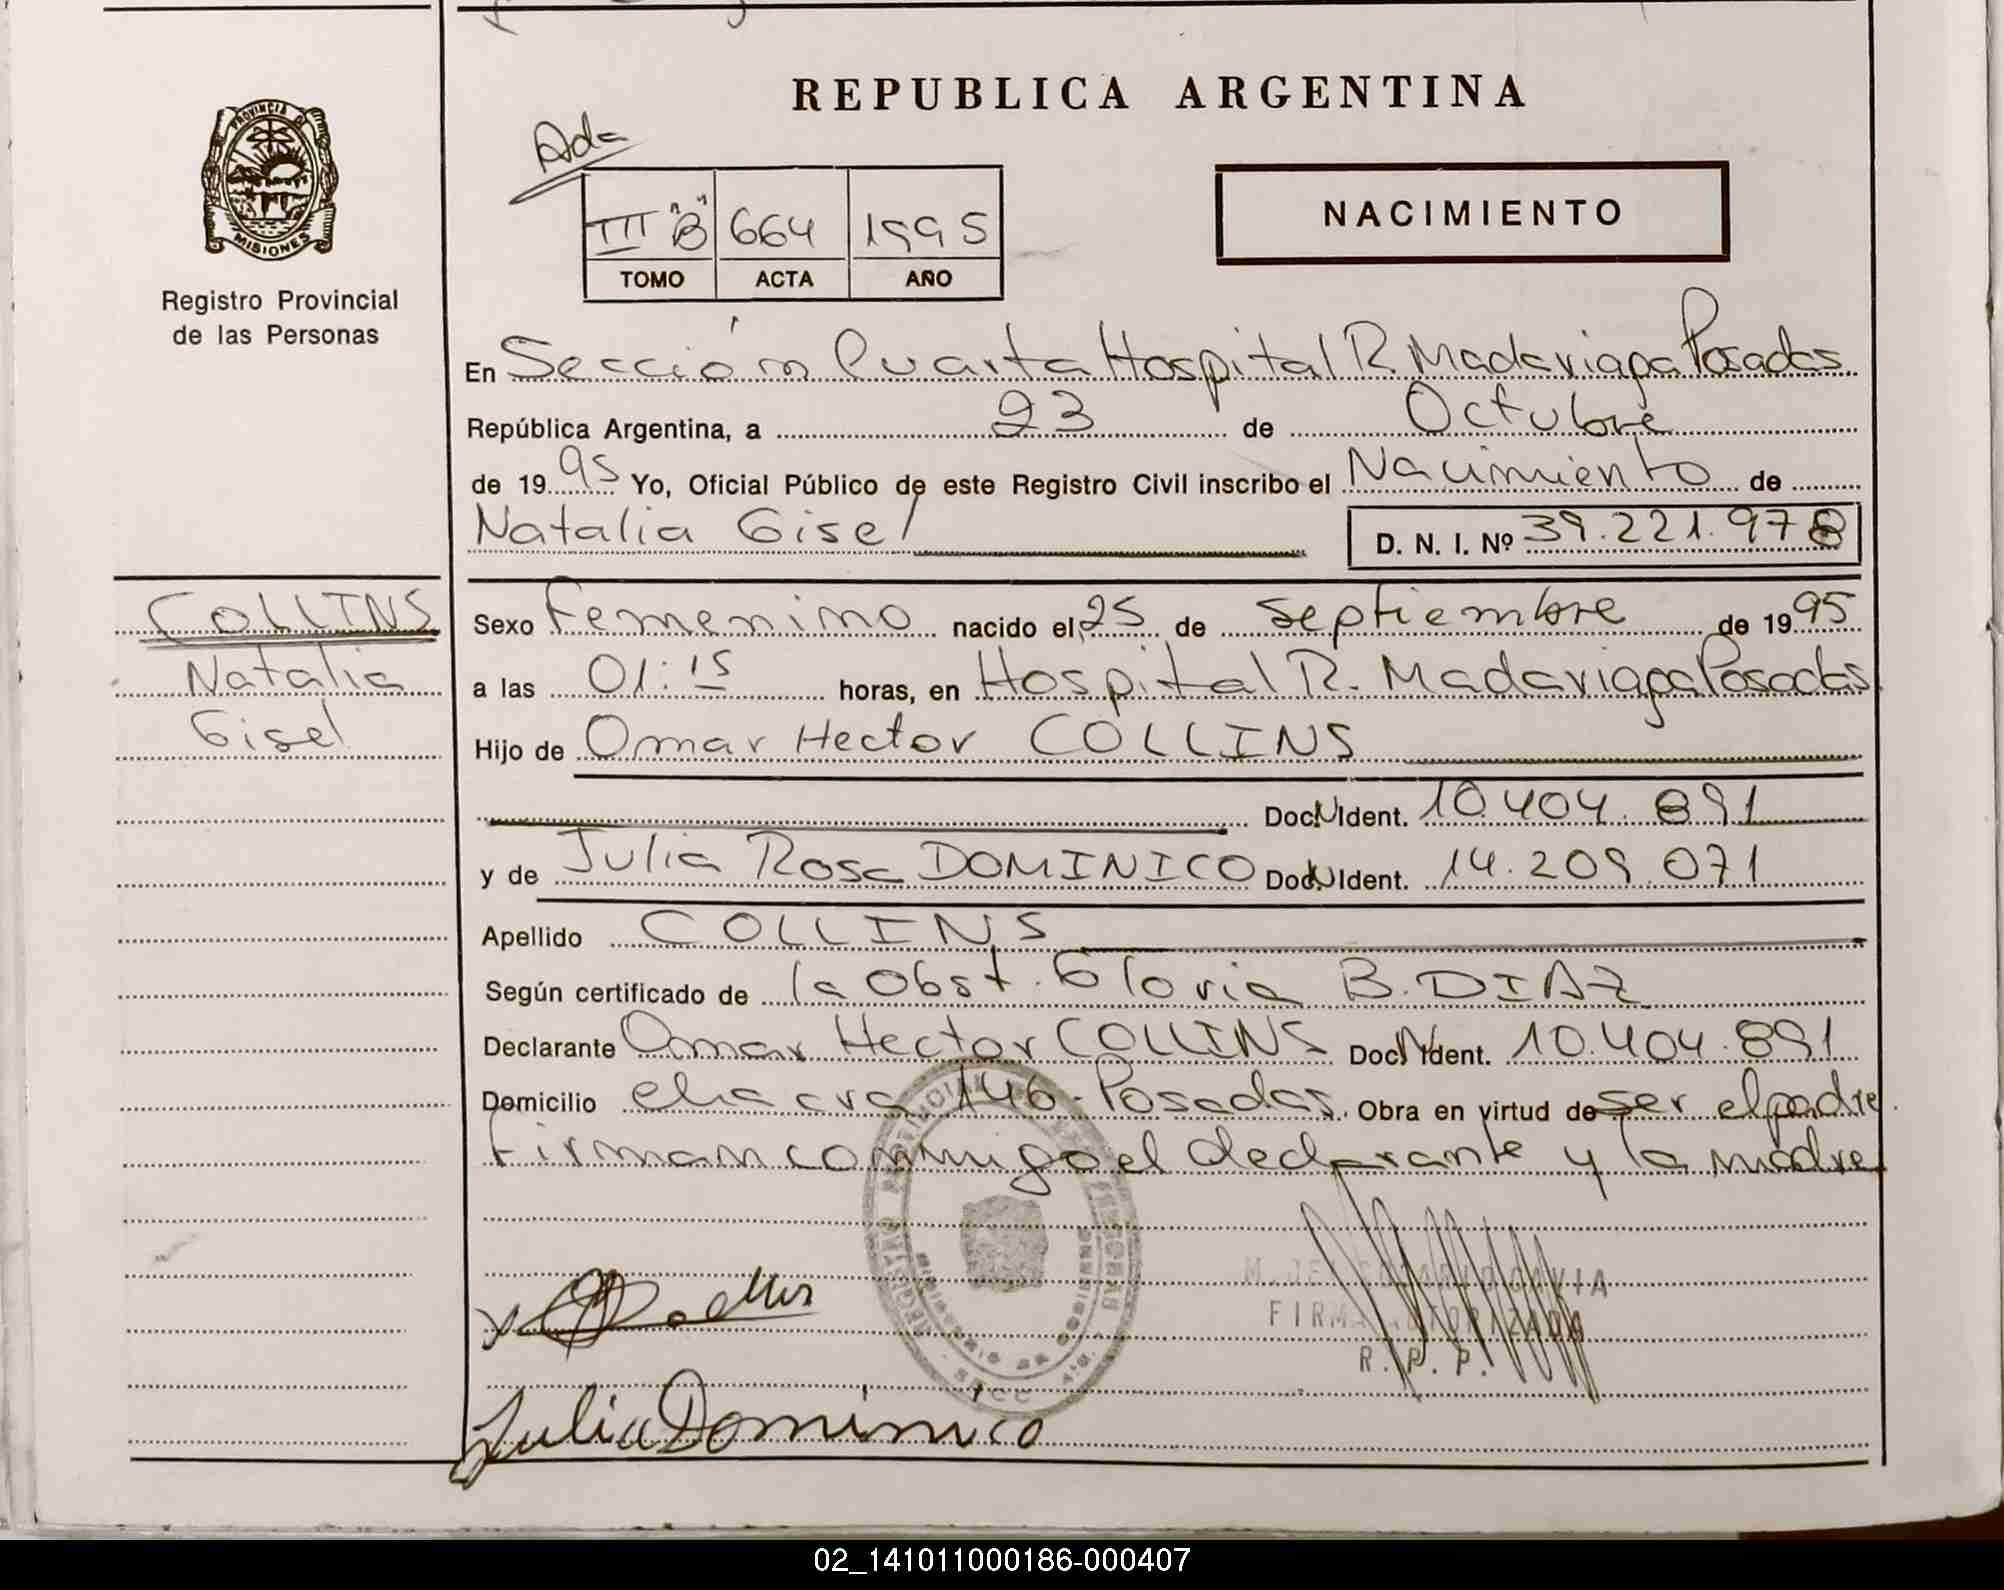 REPUBLICA ARGENTINA
PROVINCIA D
MISIONES
Registro Provincial
de las Personas
Ada
III "B" 664 1995
TOMO ACTA AÑO
NACIMIENTO
En Sección Cuarta Hospital R. Madariaga Posadas
República Argentina, a 23 de Octubre
de 1995 Yo, Oficial Público de este Registro Civil inscribo el Nacimiento de
Natalia Gisel
D. N. I. Nº 39.221.978
COLLINS
Natalia
Gisel
Sexo Femenino nacido el 25 de septiembre de 1995
a las 01:15 horas, en Hospital R. Madariaga Posadas
Hijo de Omar Hector COLLINS
Doc. N Ident. 10.404.891
y de Julia Rosa DOMINICO Doc. N Ident. 14.209.071
Apellido COLLINS
Según certificado de la Obst. Gloria B. DIAZ
Declarante Omar Hector COLLINS Doc. N Ident. 10.404.891
Domicilio chacra 146 - Posadas. Obra en virtud de ser el padre.
Firman conmigo el declarante y la madre
REGISTRO PERSONAS
FIRMA AUTORIZADA
R. P. P.
Julia Dominico
02_141011000186-000407